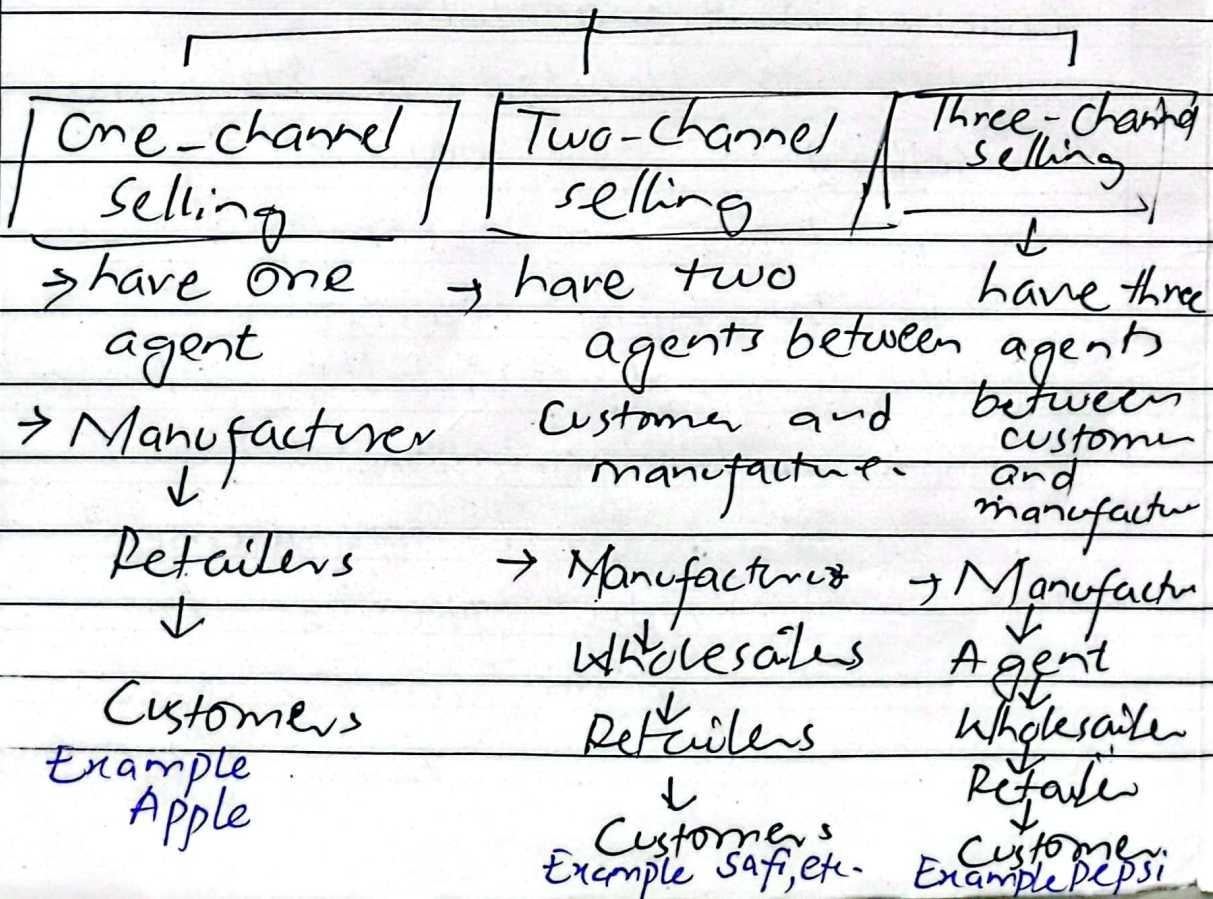 One-channel
selling
→ have one
agent
→ Manufacturer
↓
Retailers
↓
Customers
Example
Apple
Two-channel
selling
→ have two
agents between
Customer and
manufacture.
→ Manufacturer
↓
Wholesailers
↓
Retailers
↓
Customers
Example Safi, etc.
Three-channel
selling
↓
have three
agents
between
customer
and
manufactur
→ Manufactur
↓
Agent
↓
Wholesailer
↓
Retailer
↓
Customer
Example Pepsi